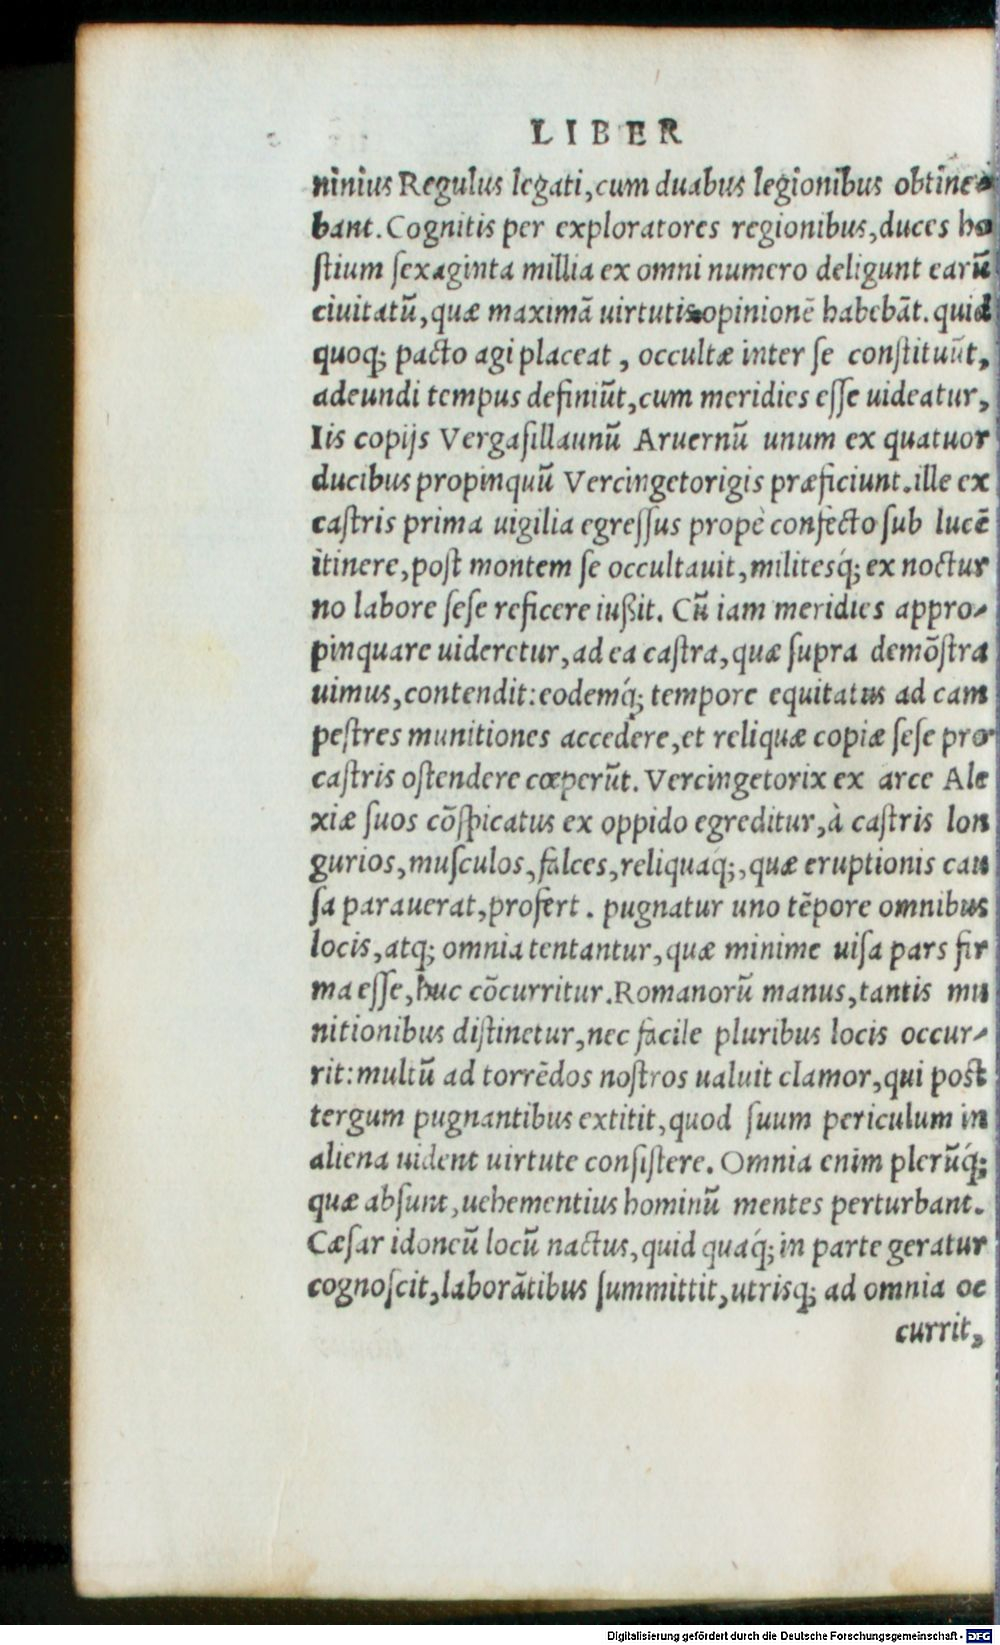 LIBER
ninius Regulus legati, cum duabus legionibus obtine-
bant. Cognitis per exploratores regionibus, duces ho
ſtium ſexaginta millia ex omni numero deligunt earũ
ciuitatũ, quæ maximã uirtutis opinionẽ habebãt. quid
quoq; pacto agi placeat, occultæ inter ſe conſtituũt,
adeundi tempus definiũt, cum meridies eſſe uideatur,
Iis copijs Vergaſillaunũ Aruernũ unum ex quatuor
ducibus propinquũ Vercingetorigis præficiunt. ille ex
caſtris prima uigilia egreſſus propè confecto ſub lucẽ
itinere, poſt montem ſe occultauit, militesq́; ex noctur
no labore ſeſe reficere iußit. Cũ iam meridies appro-
pinquare uideretur, ad ea caſtra, quæ ſupra demõſtra
uimus, contendit: eodemq́; tempore equitatus ad cam
peſtres munitiones accedere, et reliquæ copiæ ſeſe pro
caſtris oſtendere cœperũt. Vercingetorix ex arce Ale
xiæ ſuos cõſpicatus ex oppido egreditur, à caſtris lon
gurios, muſculos, falces, reliquaq́;, quæ eruptionis cau
ſa parauerat, profert. pugnatur uno tẽpore omnibus
locis, atq; omnia tentantur, quæ minime uiſa pars fir
ma eſſe, huc cõcurritur. Romanorũ manus, tantis mu
nitionibus diſtinetur, nec facile pluribus locis occur-
rit: multũ ad torrẽdos noſtros ualuit clamor, qui poſt
tergum pugnantibus extitit, quod ſuum periculum in
aliena uident uirtute conſiſtere. Omnia enim plerũq́;
quæ abſunt, uehementius hominũ mentes perturbant.
Cæſar idoneũ locũ nactus, quid quaq́; in parte geratur
cognoſcit, laborãtibus ſummittit, utrisq; ad omnia oc
currit,
Digitalisierung gefördert durch die Deutsche Forschungsgemeinschaft - DFG